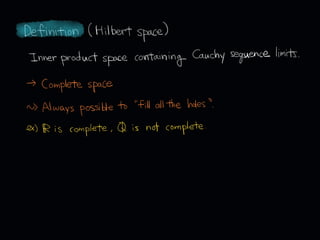 Definition (Hilbert space)
Inner product space containing Cauchy sequence limits.
→ Complete space
~) Always possible to "fill all the holes".
ex) ℝ is complete, ℚ is not complete